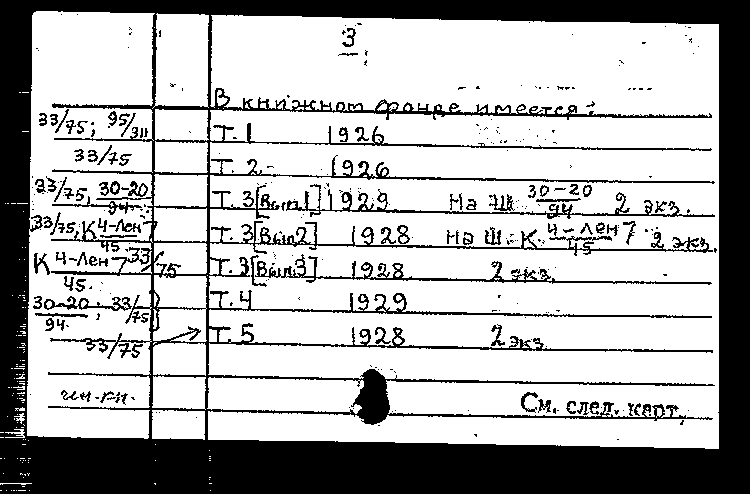 3
В книжном фонде имеется:
33/75; 95/311 Т. 1 1926
33/75 Т. 2 1926
33/75, 30-20/94 Т. 3 [Вып.1] 1929 на Ш 30-20/94 2 экз.
33/75, К Ч-Лен 7/45 Т. 3 [Вып.2] 1928 на Ш. К Ч-Лен 7/45 2 экз.
К Ч-Лен 7/45. 33/75 Т. 3 [Вып.3] 1928 2 экз.
30-20/94. ; 33/75 Т. 4 1929
33/75 Т. 5 1928 2 экз.
См. след. карт.